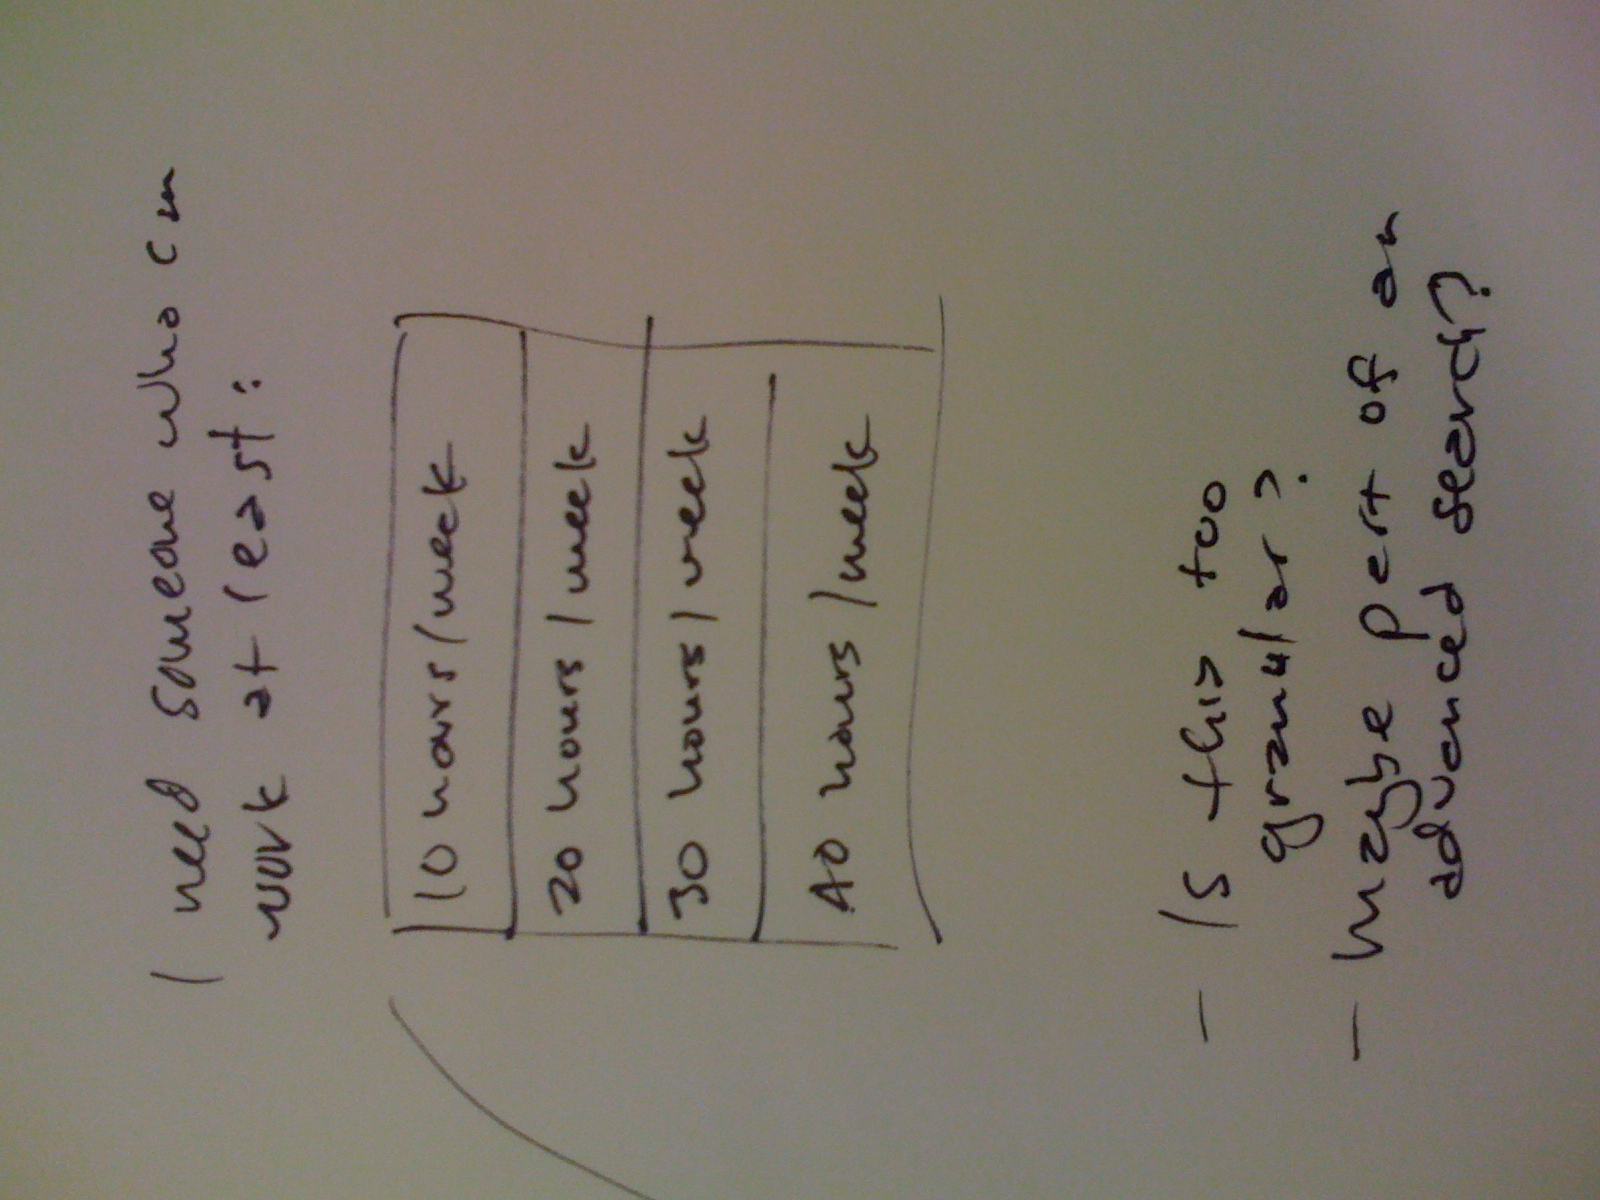 I need someone who can
work at least:
10 hours/week
20 hours/week
30 hours/week
40 hours/week
- Is this too
granular?
- Maybe part of an
advanced search?